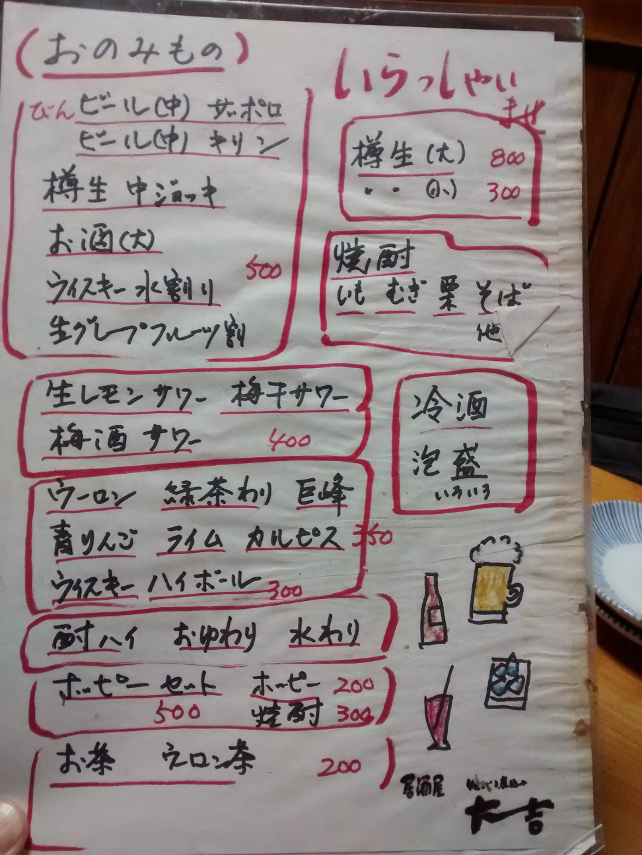 (おのみもの)
びん ビール(中) サッポロ
ビール(中) キリン
樽生 中ジョッキ
お酒(大)
500
ウィスキー水割り
生グレープフルーツ割
生レモンサワー 梅干サワー
梅酒サワー 400
ウーロン 緑茶わり 巨峰
青りんご ライム カルピス 350
ウィスキーハイボール 300
酎ハイ おゆわり 水わり
ホッピーセット ホッピー 200
500 焼酎 300
お茶 ウーロン茶 200
いらっしゃい
ませ
樽生(大) 800
〃 〃 (小) 300
焼酎
いも むぎ 栗 そば
他
冷酒
泡盛
いろいろ
居酒屋
大吉